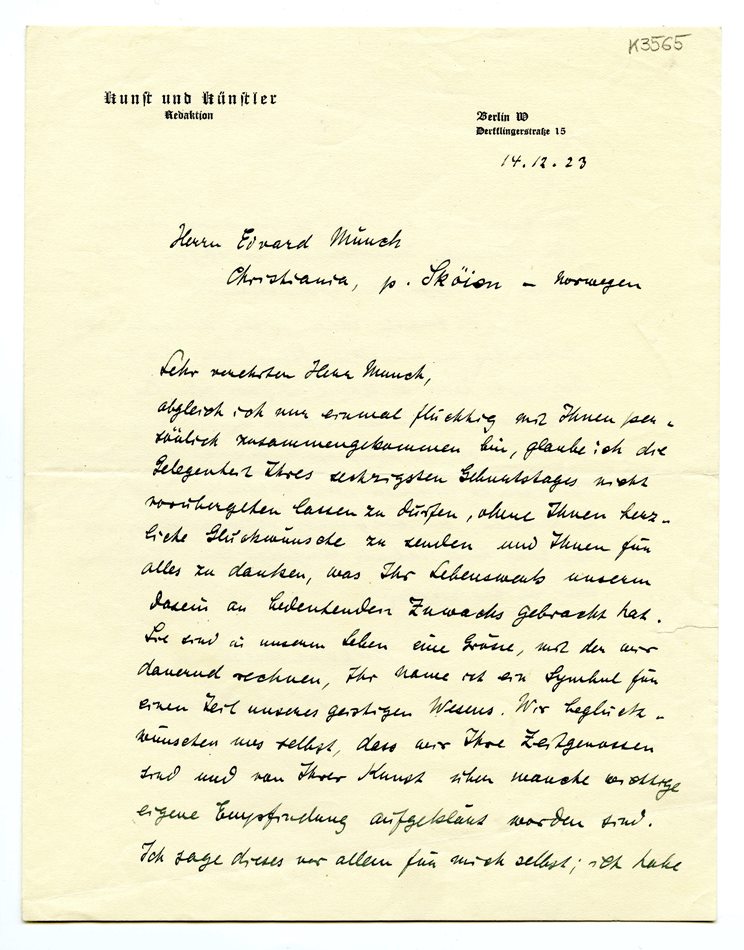 K3565
Kunst und Künstler
Redaktion
Berlin W
Derfflingerstraße 15
14.12.23
Herrn Edvard Münch
Christiania, p. Sköien – Norwegen
Sehr verehrter Herr Munch,
obgleich ich nur einmal flüchtig mit Ihnen per-
sönlich zusammengekommen bin, glaube ich die
Gelegenheit Ihres sechzigsten Geburtstages nicht
vorübergehen lassen zu dürfen, ohne Ihnen herz-
liche Glückwünsche zu senden und Ihnen für
alles zu danken, was Ihr Lebenswerk unserm
Dasein an bedeutenden Zuwachs gebracht hat.
Sie sind in unserm Leben eine Grösse, mit der wir
dauernd rechnen, Ihr Name ist ein Symbol für
einen Teil unseres geistigen Wesens. Wir beglück-
wünschen uns selbst, dass wir Ihre Zeitgenossen
sind und von Ihrer Kunst über manche wichtige
eigene Empfindung aufgeklärt worden sind.
Ich sage dieses vor allem für mich selbst; ich habe